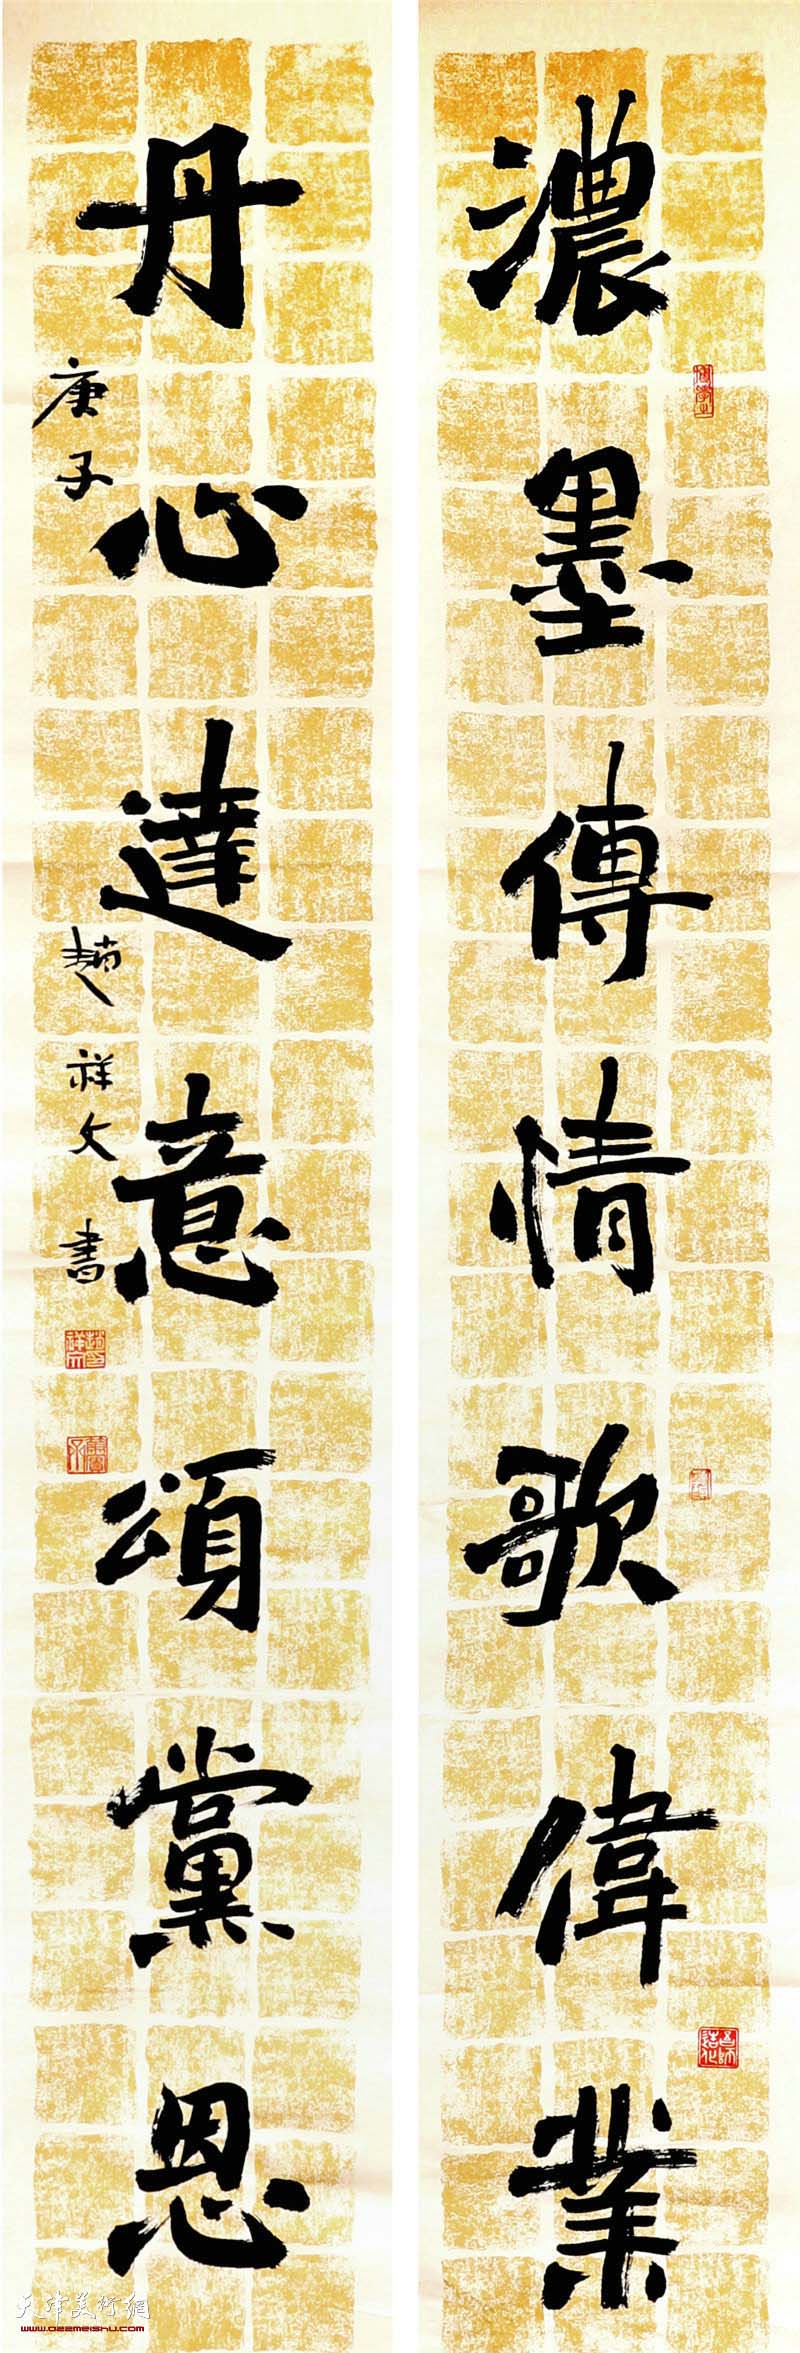 濃墨傳情歌偉業
丹心達意頌黨恩
庚子
趙祥文書
天津美術網
www.022meishu.com